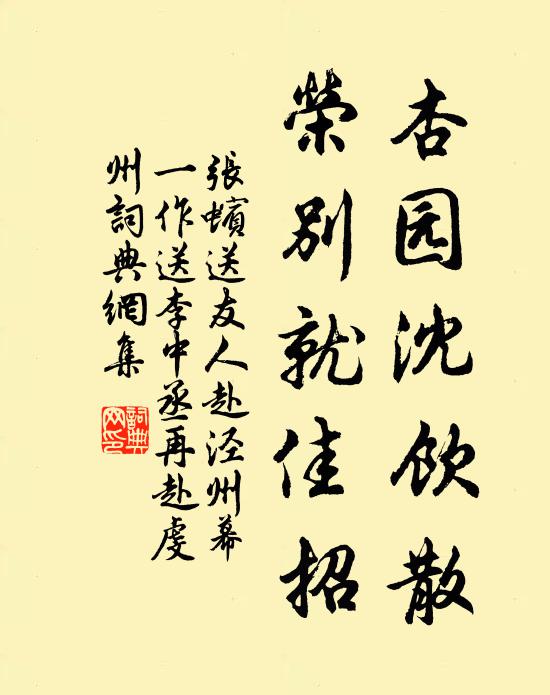 杏园沈饮散
榮别就佳招
張蠙送友人赴泾州幕
一作送李中丞再赴虔
州詞典網集
詞典
网印